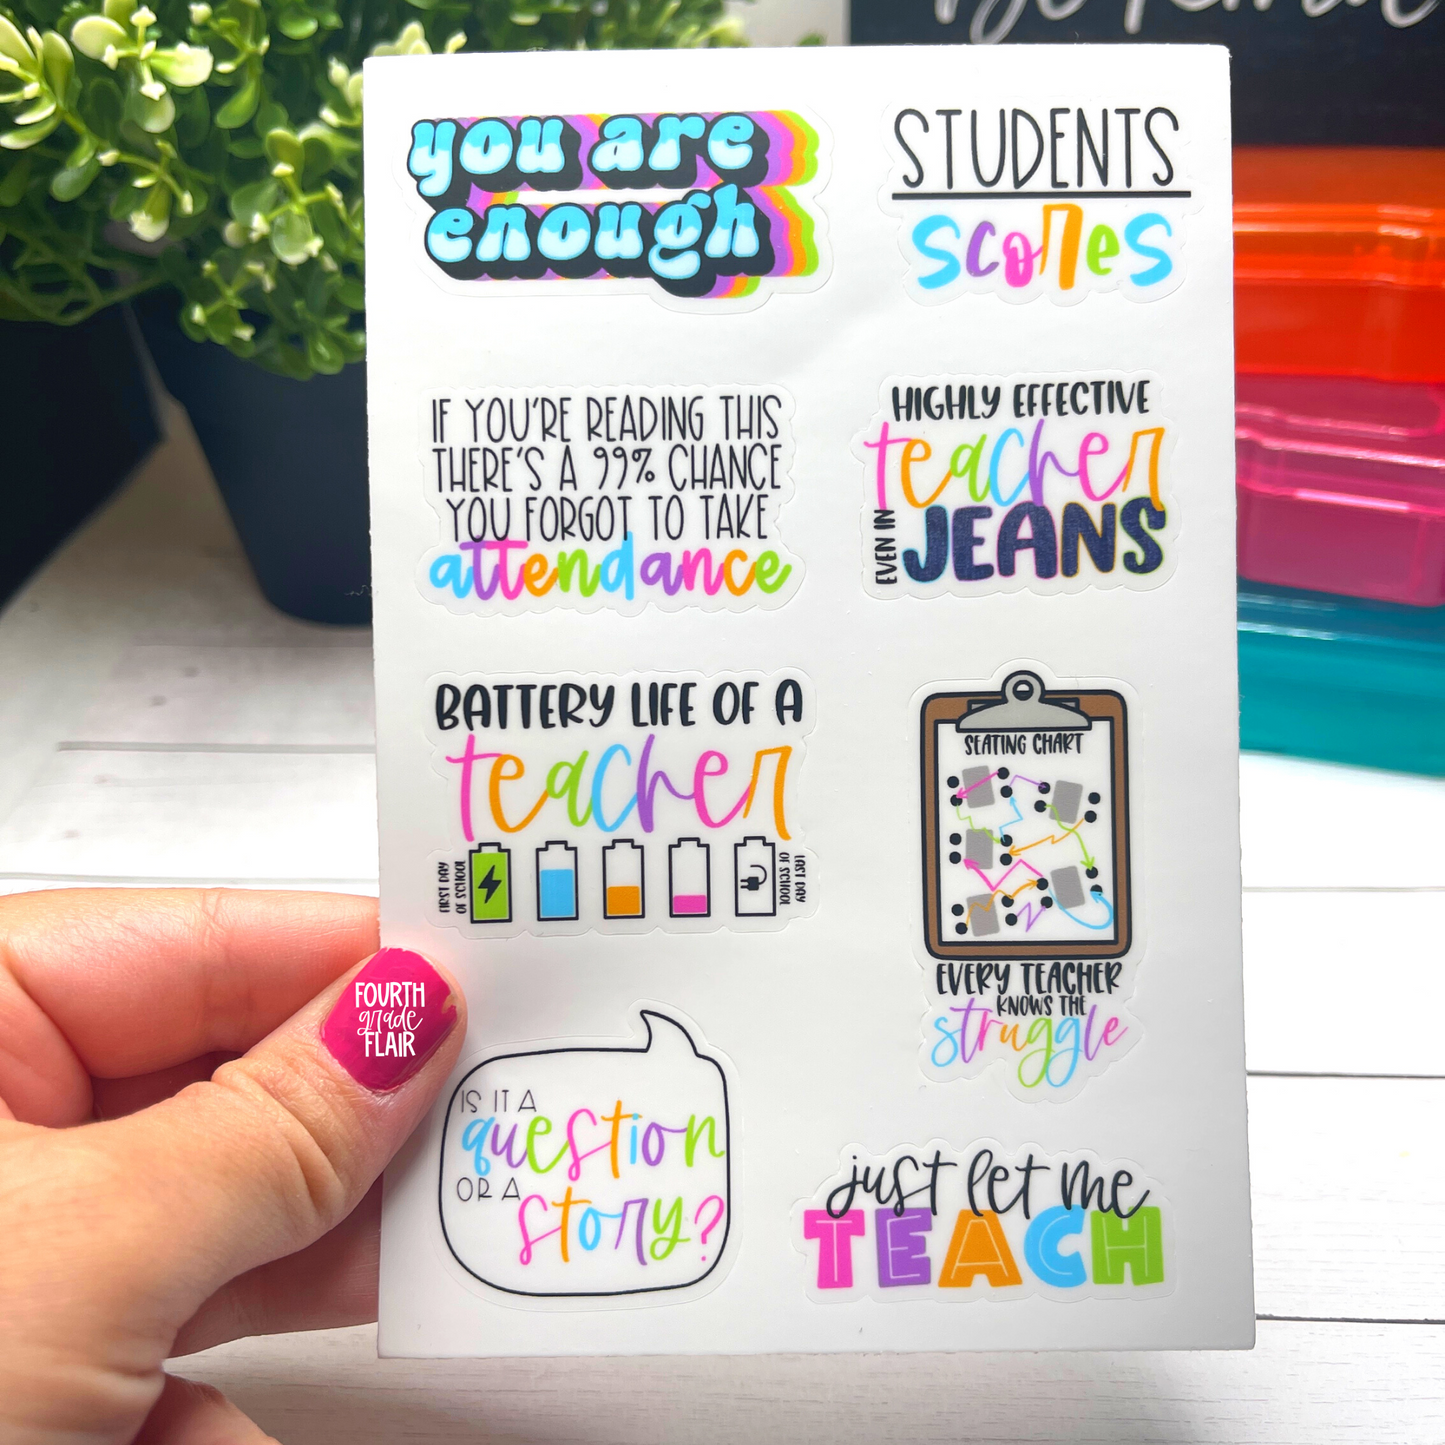 you are
enough
STUDENTS
scores
IF YOU'RE READING THIS
THERE'S A 99% CHANCE
YOU FORGOT TO TAKE
attendance
HIGHLY EFFECTIVE
teacher
EVEN IN
JEANS
BATTERY LIFE OF A
teacher
FIRST DAY
OF SCHOOL
LAST DAY
OF SCHOOL
SEATING CHART
EVERY TEACHER
KNOWS THE
struggle
FOURTH
grade
FLAIR
IS IT A
question
OR A
story?
just let me
TEACH